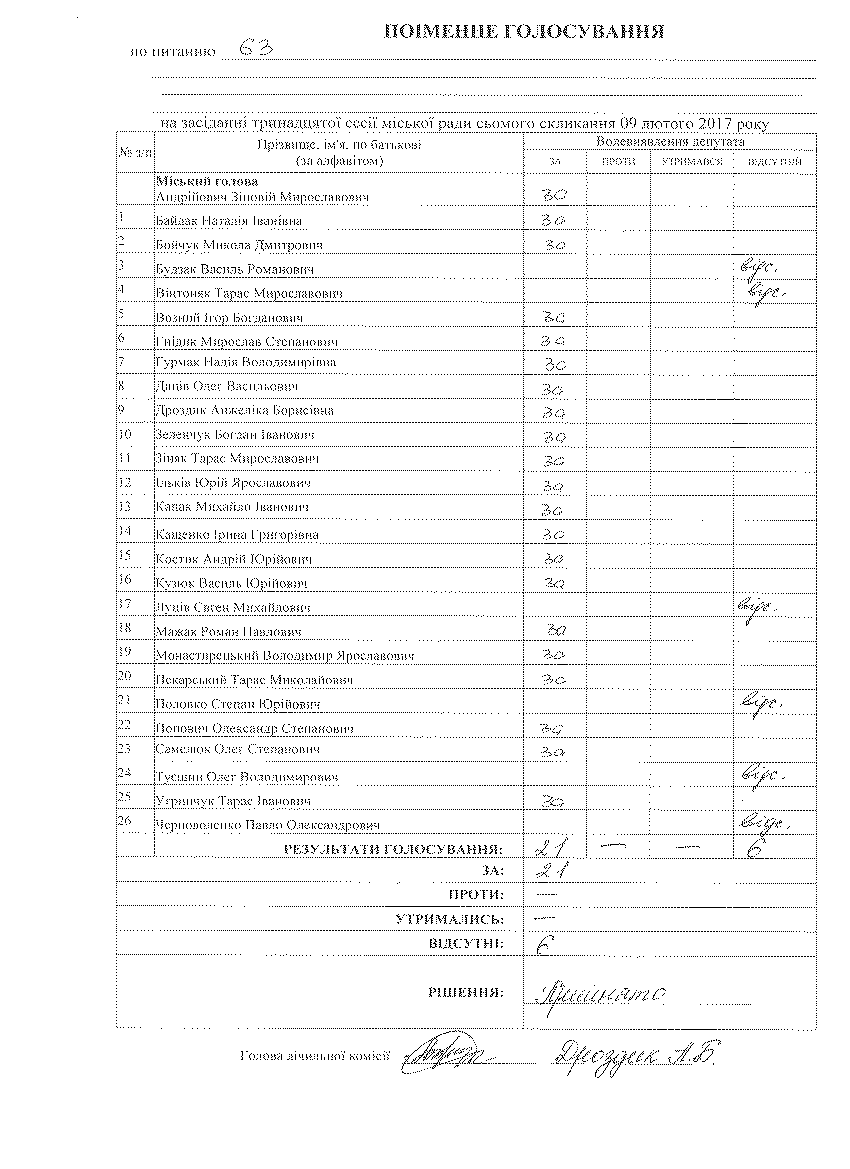 ПОІМЕННЕ ГОЛОСУВАННЯ
по питанню 63
на засіданні тринадцятої сесії міської ради сьомого скликання 09 лютого 2017 року
№ з/п Прізвище, ім'я, по батькові (за алфавітом) Волевиявлення депутата
ЗА ПРОТИ УТРИМАВСЯ ВІДСУТНІЙ
Міський голова
Андрійович Зіновій Мирославович за
1 Байдак Наталія Іванівна за
2 Бойчук Микола Дмитрович за
3 Будзак Василь Романович відс.
4 Віктоняк Тарас Мирославович відс.
5 Возний Ігор Богданович за
6 Гнідик Мирослав Степанович за
7 Гурмак Надія Володимирівна за
8 Данів Олег Васильович за
9 Дроздик Анжеліка Борисівна за
10 Зеленчук Богдан Іванович за
11 Зіняк Тарас Мирославович за
12 Ільків Юрій Ярославович за
13 Капак Михайло Іванович за
14 Кащенко Ірина Григорівна за
15 Костюк Андрій Юрійович за
16 Кузюк Василь Юрійович за
17 Луців Євген Михайлович відс.
18 Мажак Роман Павлович за
19 Монастирецький Володимир Ярославович за
20 Пекарський Тарас Миколайович за
21 Половко Степан Юрійович відс.
22 Попович Олександр Степанович за
23 Самелюк Олег Степанович за
24 Тусини Олег Володимирович відс.
25 Угринчук Тарас Іванович за
26 Черноволенко Павло Олександрович відс.
РЕЗУЛЬТАТИ ГОЛОСУВАННЯ: 21 — — 6
ЗА: 21
ПРОТИ: —
УТРИМАЛИСЬ: —
ВІДСУТНІ: 6
РІШЕННЯ: Прийнято
Голова лічильної комісії Дроздик А.Б.